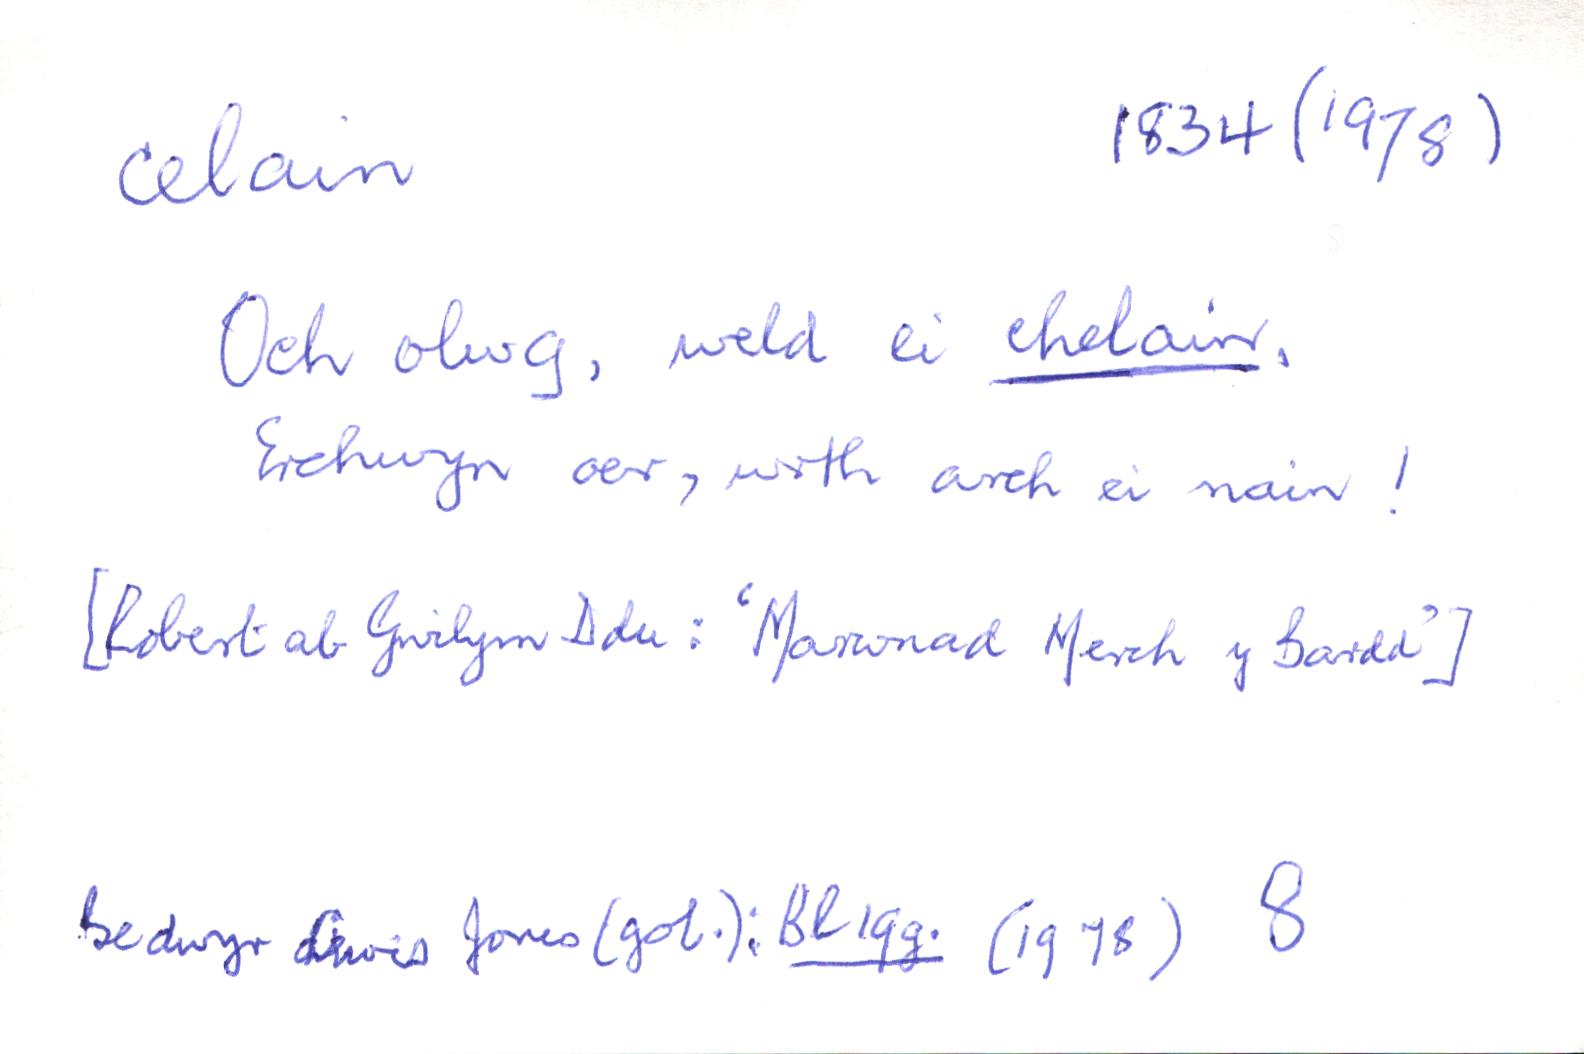 celain 1834 (1978)
Och olwg, weld ei chelain,
Erchwyn oer, wrth arch ei nain!
[Robert ab Gwilym Ddu: 'Marwnad Merch y Bardd']
Bedwyr Lewis Jones (gol.): Bl 19g. (1978) 8